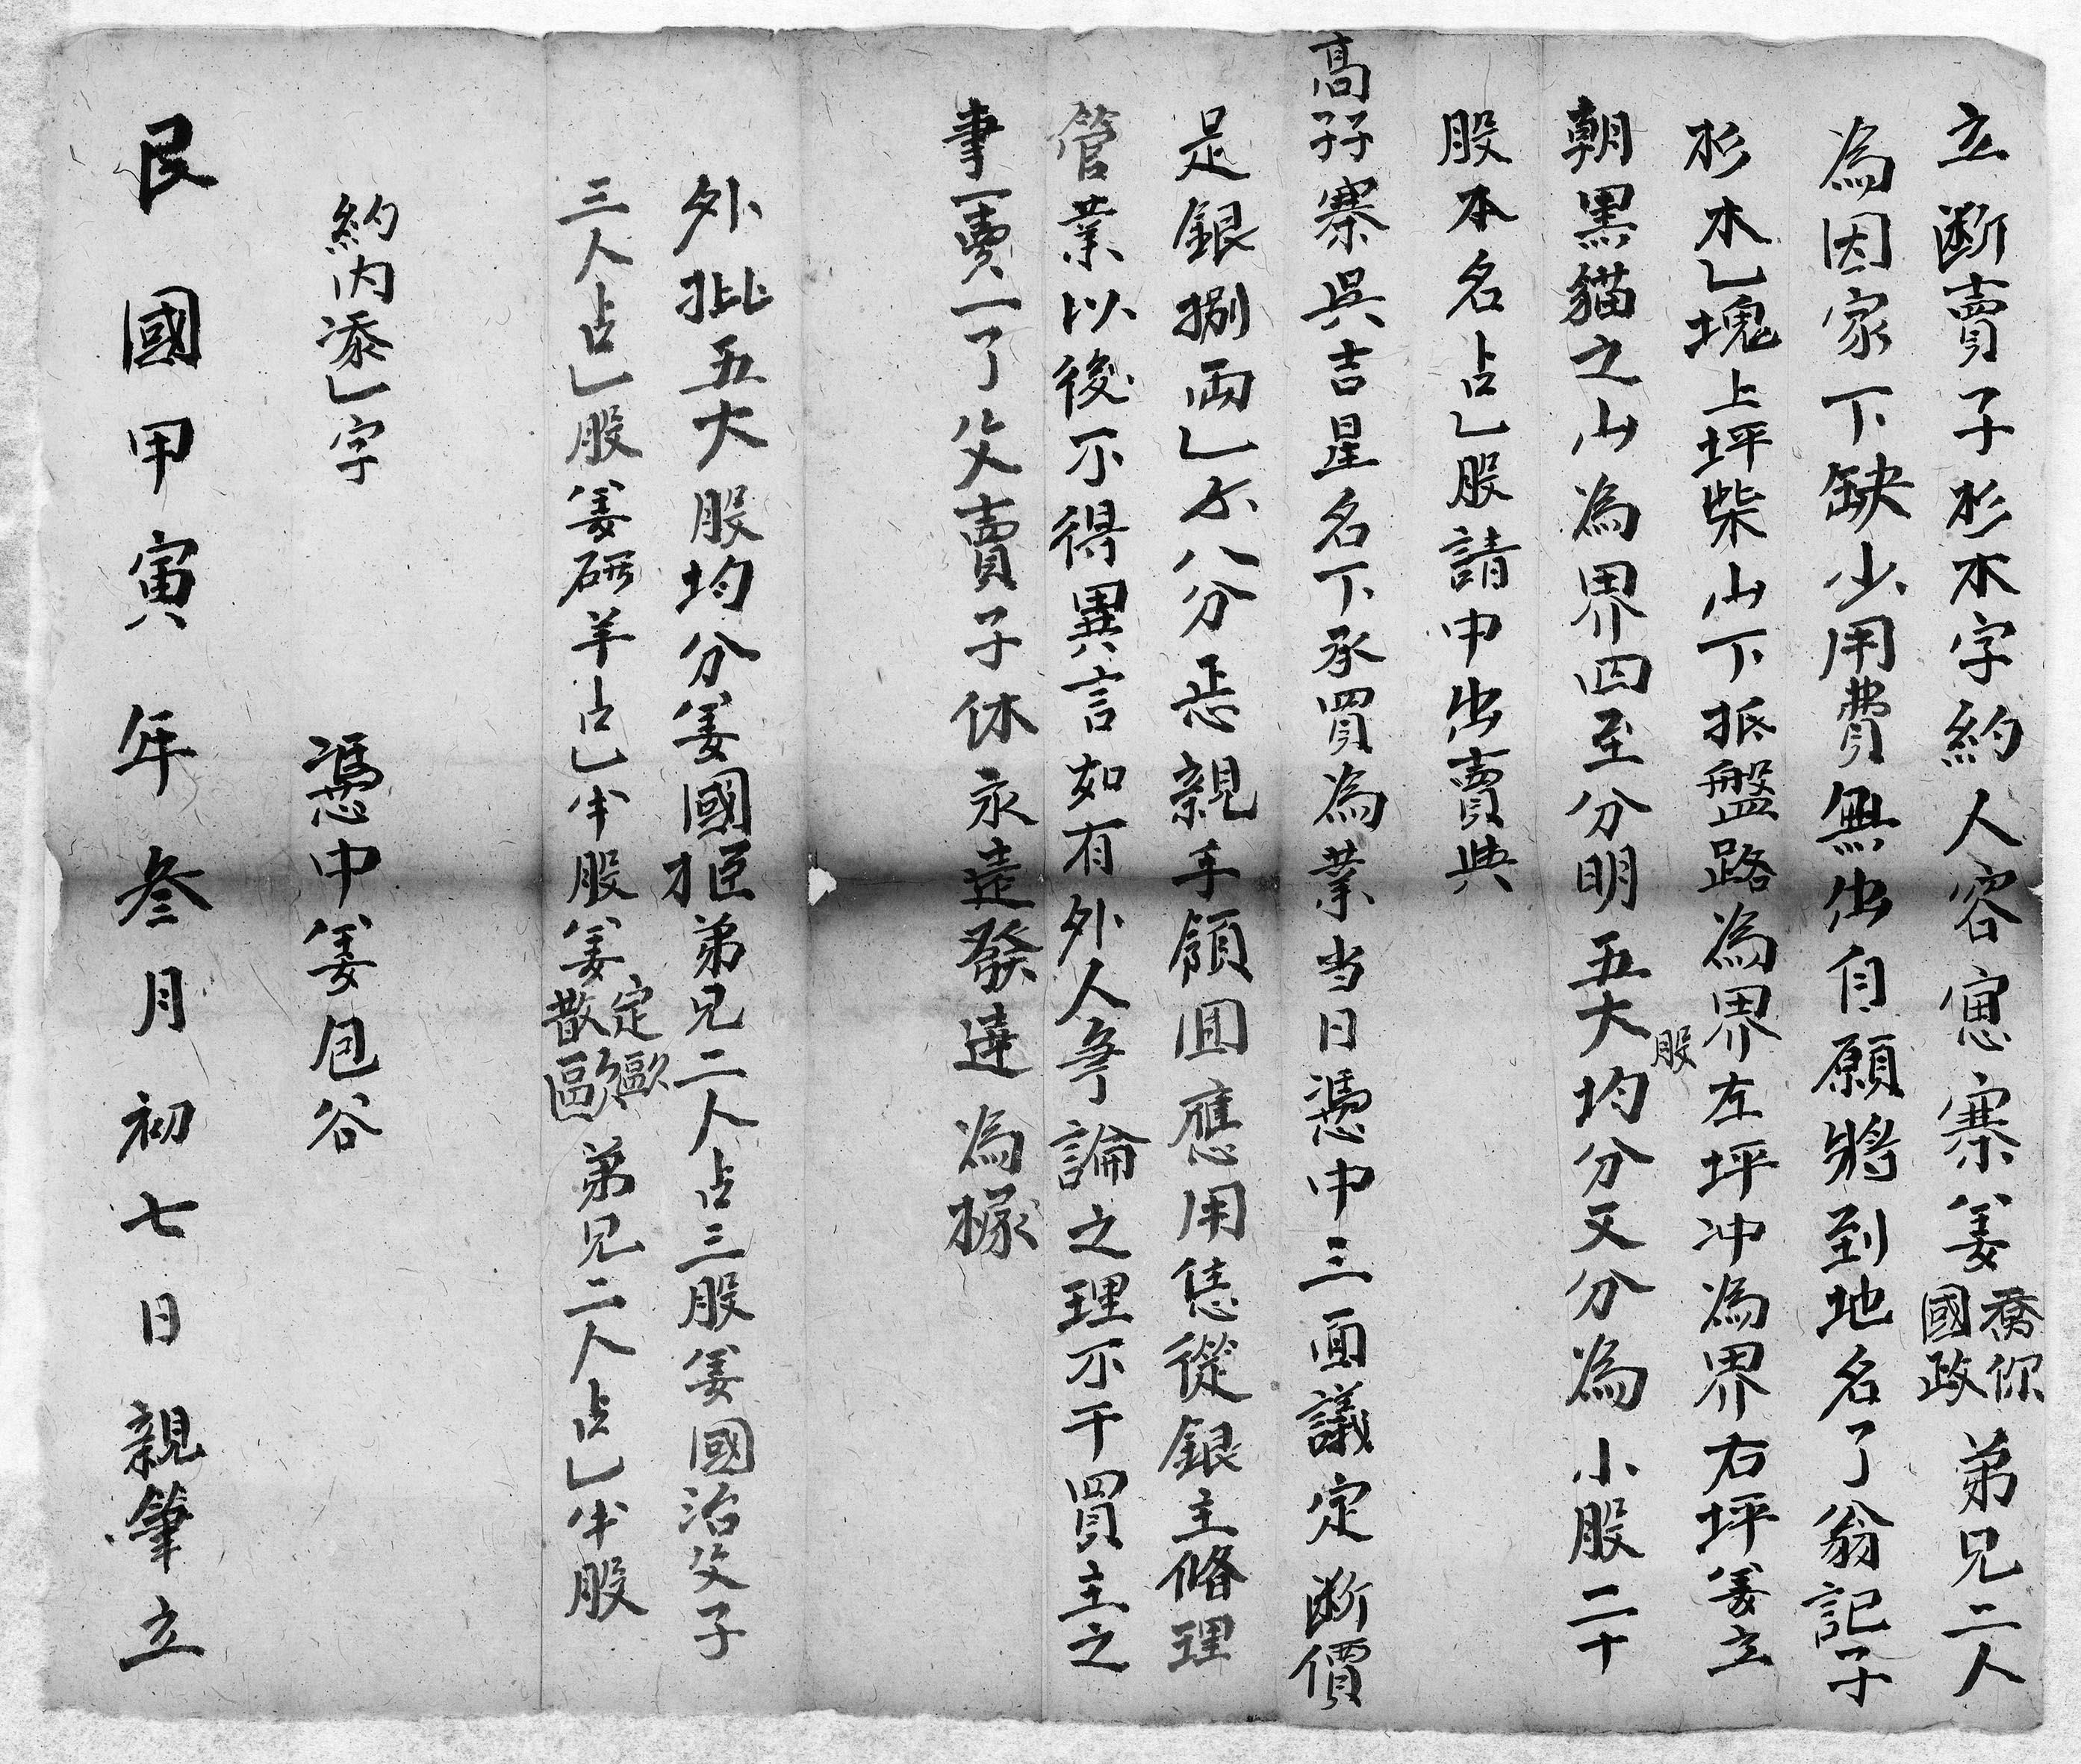 立断賣子杉木字約人容寔寨姜喬你國政弟兄二人
為因家下缺少用費無出自願將到地名了翁記子
杉木乚塊上坪柴山下抵盤路為界左坪冲為界右坪姜立
朝黑貓之山為界四至分明五大股均分又分為小股二十
股本名占乚股請中出賣與
高孖寨吳吉星名下承買為業当日憑中三面議定断價
是銀捌両乚八分恁親手領囬應用恁從銀主修理
管業以後不得異言如有外人争論之理不干買主之
事一賣一了父賣子休永遠發達為據
外批五大股均分姜國弟兄二人占三股姜國治父子
三人占乚股姜研羊占乚半股姜定歐散歐弟兄二人占乚半股
約内添乚字
憑中姜包谷
民國甲寅年叁月初七日親筆立